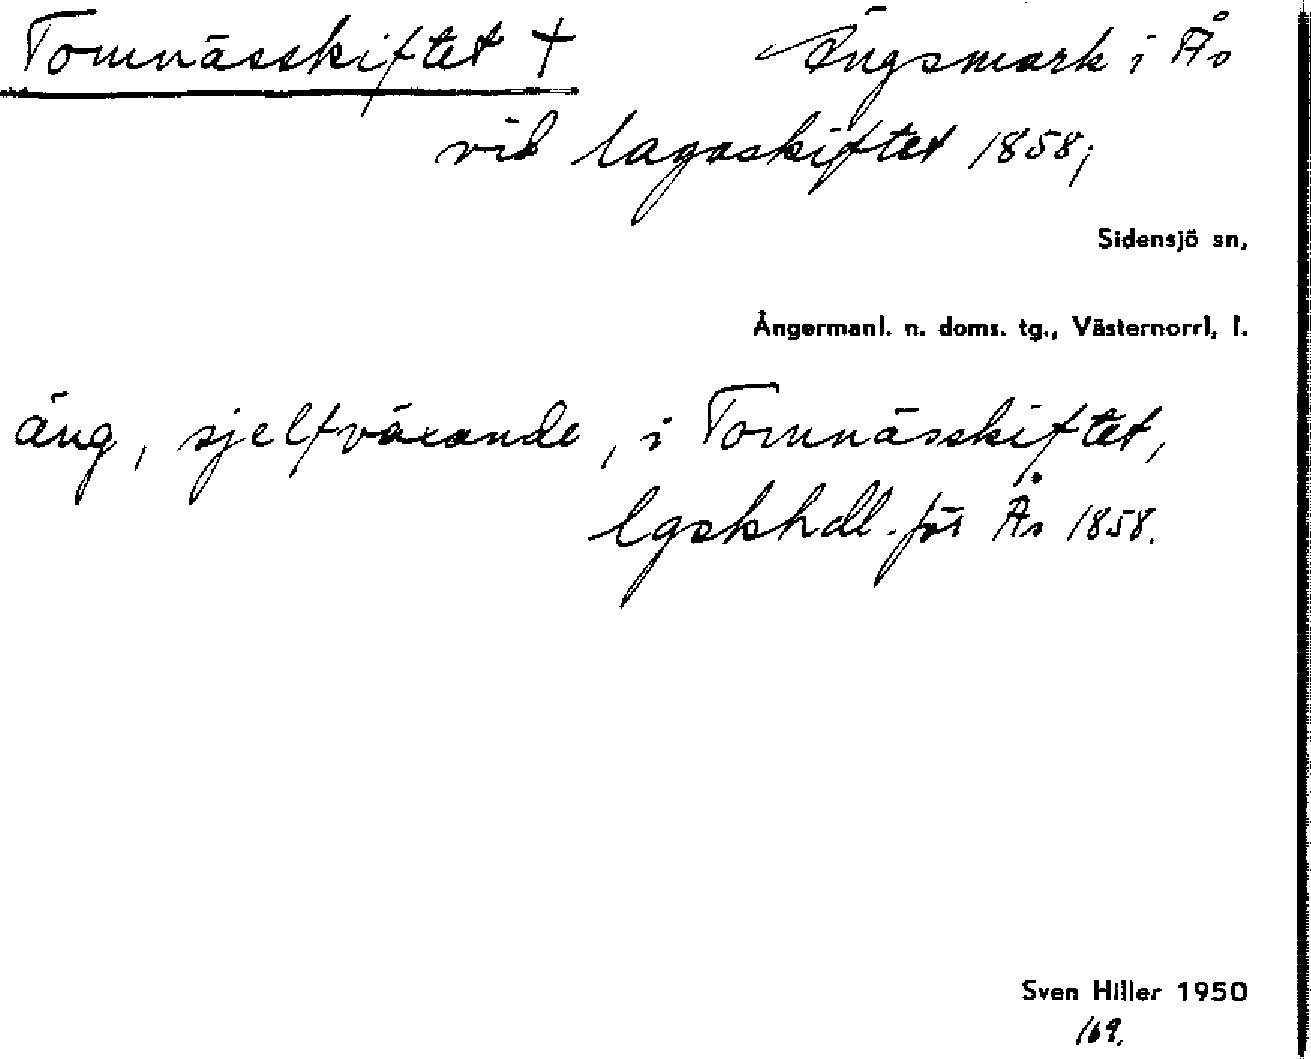 Tomnässkiftet † Ängsmark i Ås
vid lagaskiftet 1858;
Sidensjö sn,
Ångermanl. n. doms. tg., Västernorrl, l.
äng, sjelfväxande, i Tomnässkiftet,
lgskhdl. för Ås 1858.
Sven Hiller 1950
169.